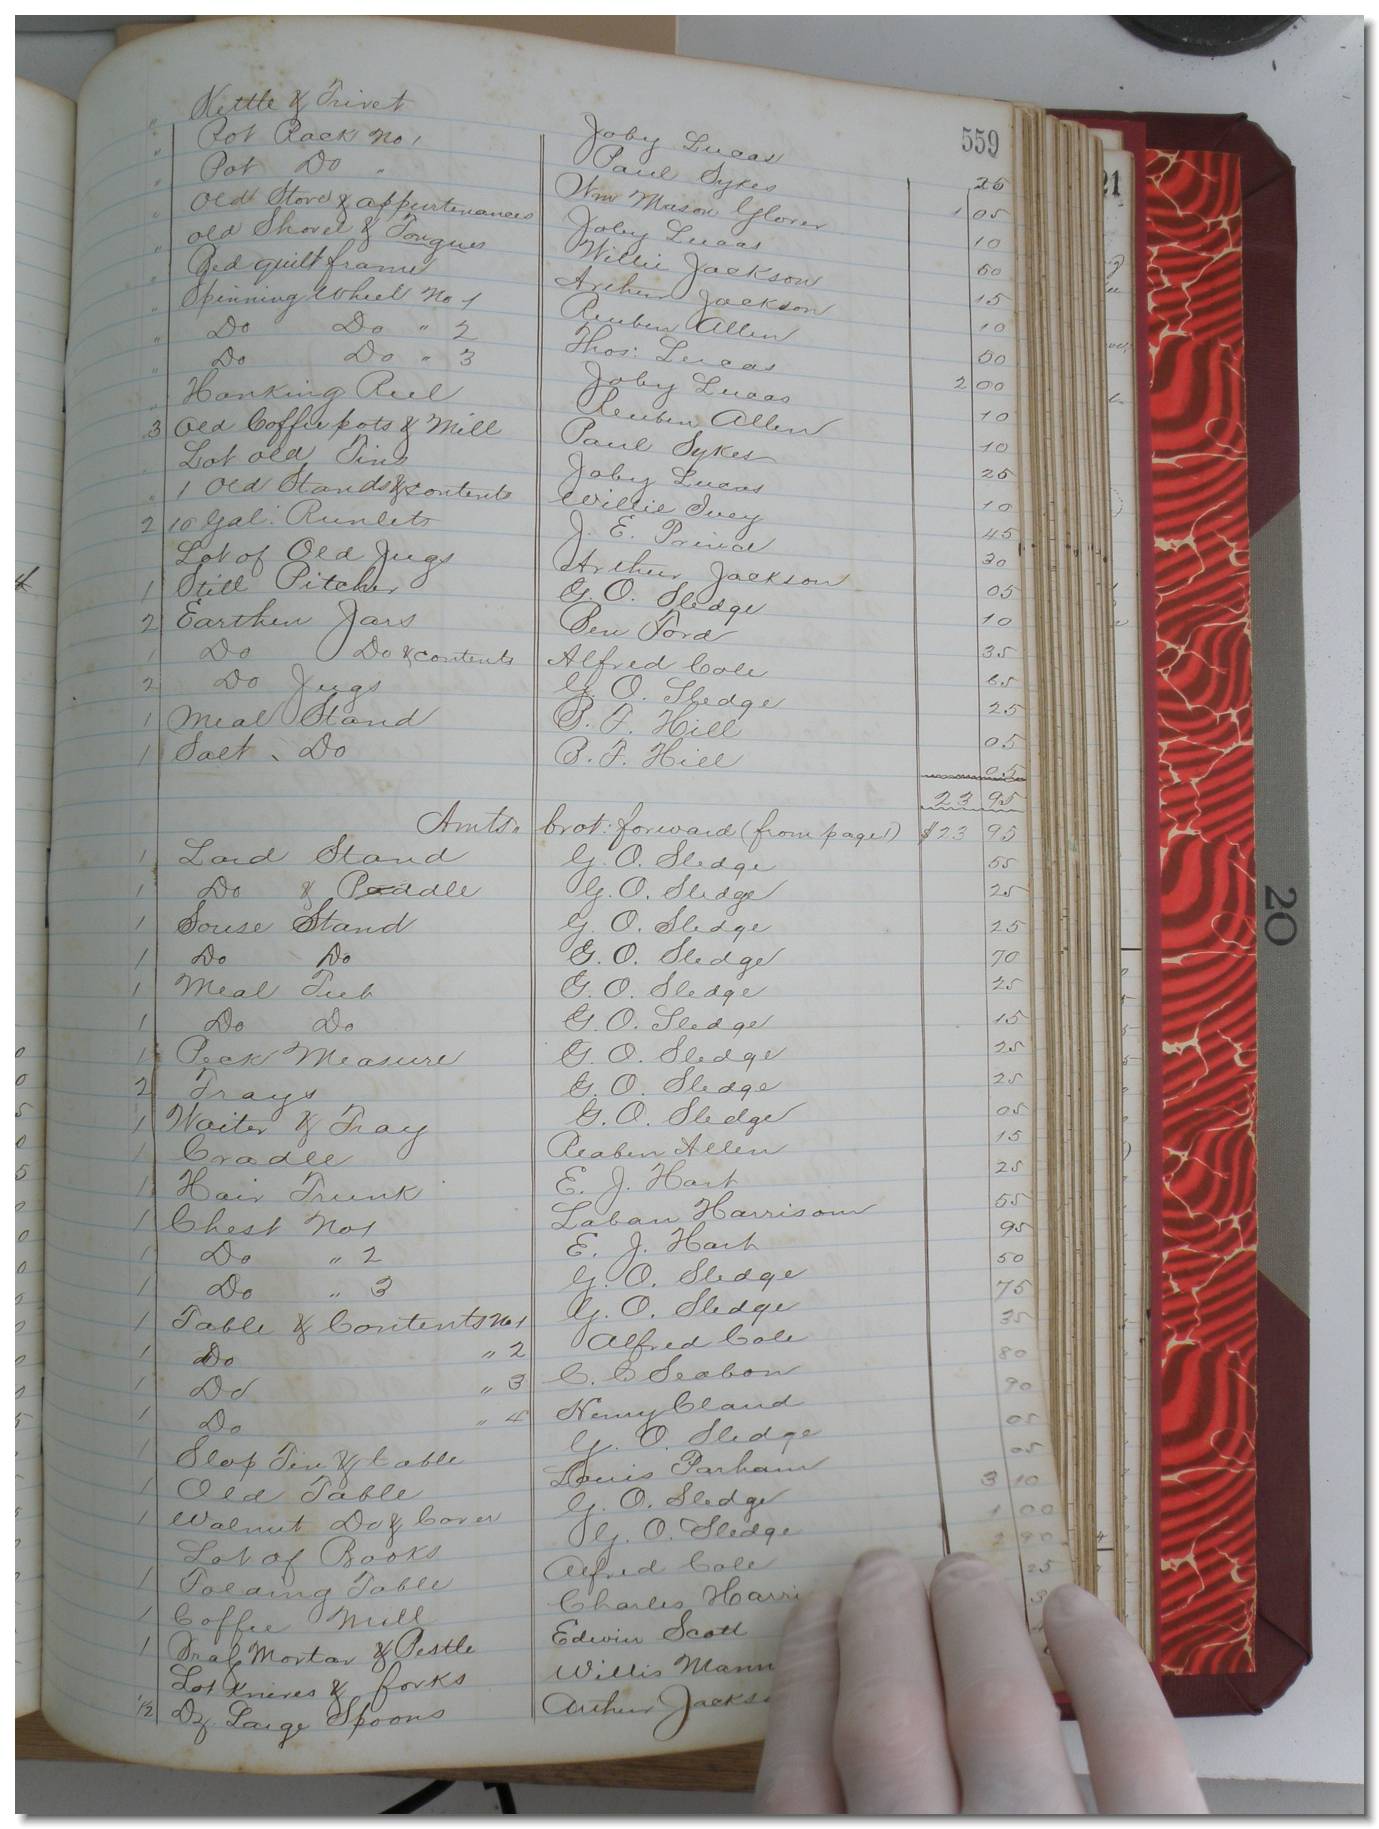 559
" Kettle & Trivet Joby Lucas 25
" Pot Rack No 1 Paul Sykes 1 05
" Pot Do " Wm Mason Glover 10
" Old Stove & appurtenances Joby Lucas 60
" old Shovel & Tongues Willie Jackson 15
" Bed quilt frame Arthur Jackson 10
" Spinning Wheel No 1 Reuben Allen 50
" Do Do " 2 Thos: Lucas 2 00
" Do Do " 3 Joby Lucas 10
" Hanking Reel Reuben Allen 10
3 Old Coffee pots & Mill Paul Sykes 25
" Lot old Tins Joby Lucas 10
" 1 Old Stands & contents Willie Ivey 45
2 10 Gal: Runlets J. E. Prince 30
Lot of Old Jugs Arthur Jackson 05
1 Still Pitcher G. O. Sledge 10
2 Earthen Jars Ben Ford 35
1 Do Do & contents Alfred Cole 65
2 Do Jugs G. O. Sledge 25
1 Meal Stand B. F. Hill 05
1 Salt Do B. F. Hill 05
23 95
Amts. brot: forward (from page 1) $23 95
1 Lard Stand G. O. Sledge 55
1 Do & Paddle G. O. Sledge 25
1 Souse Stand G. O. Sledge 25
1 Do Do G. O. Sledge 70
1 Meal Tub G. O. Sledge 25
1 Do Do G. O. Sledge 15
1 Peck Measure G. O. Sledge 25
2 Trays G. O. Sledge 25
1 Waiter & Tray G. O. Sledge 05
1 Cradle Reaben Allen 15
1 Hair Trunk E. J. Hart 25
1 Chest No 1 Laban Harrison 55
1 Do " 2 E. J. Hart 95
1 Do " 3 G. O. Sledge 50
1 Table & Contents No 1 G. O. Sledge 75
1 Do " 2 Alfred Cole 35
1 Do " 3 C. C Seabon 80
1 Do " 4 Henry Cland 90
1 Slop Tin & table G. O. Sledge 05
1 Old Table Louis Parham 05
1 Walnut Do & Cover G. O. Sledge 3 10
Lot of Books G. O. Sledge 1 00
1 Folding Table Alfred Cole 2 90
1 Coffee Mill Charles Harri 25
1 Mortar & Pestle Edwin Scott 3
Lot Knives & forks Willis Mann
1/2 Dz Large Spoons Arthur Jacks
20
21